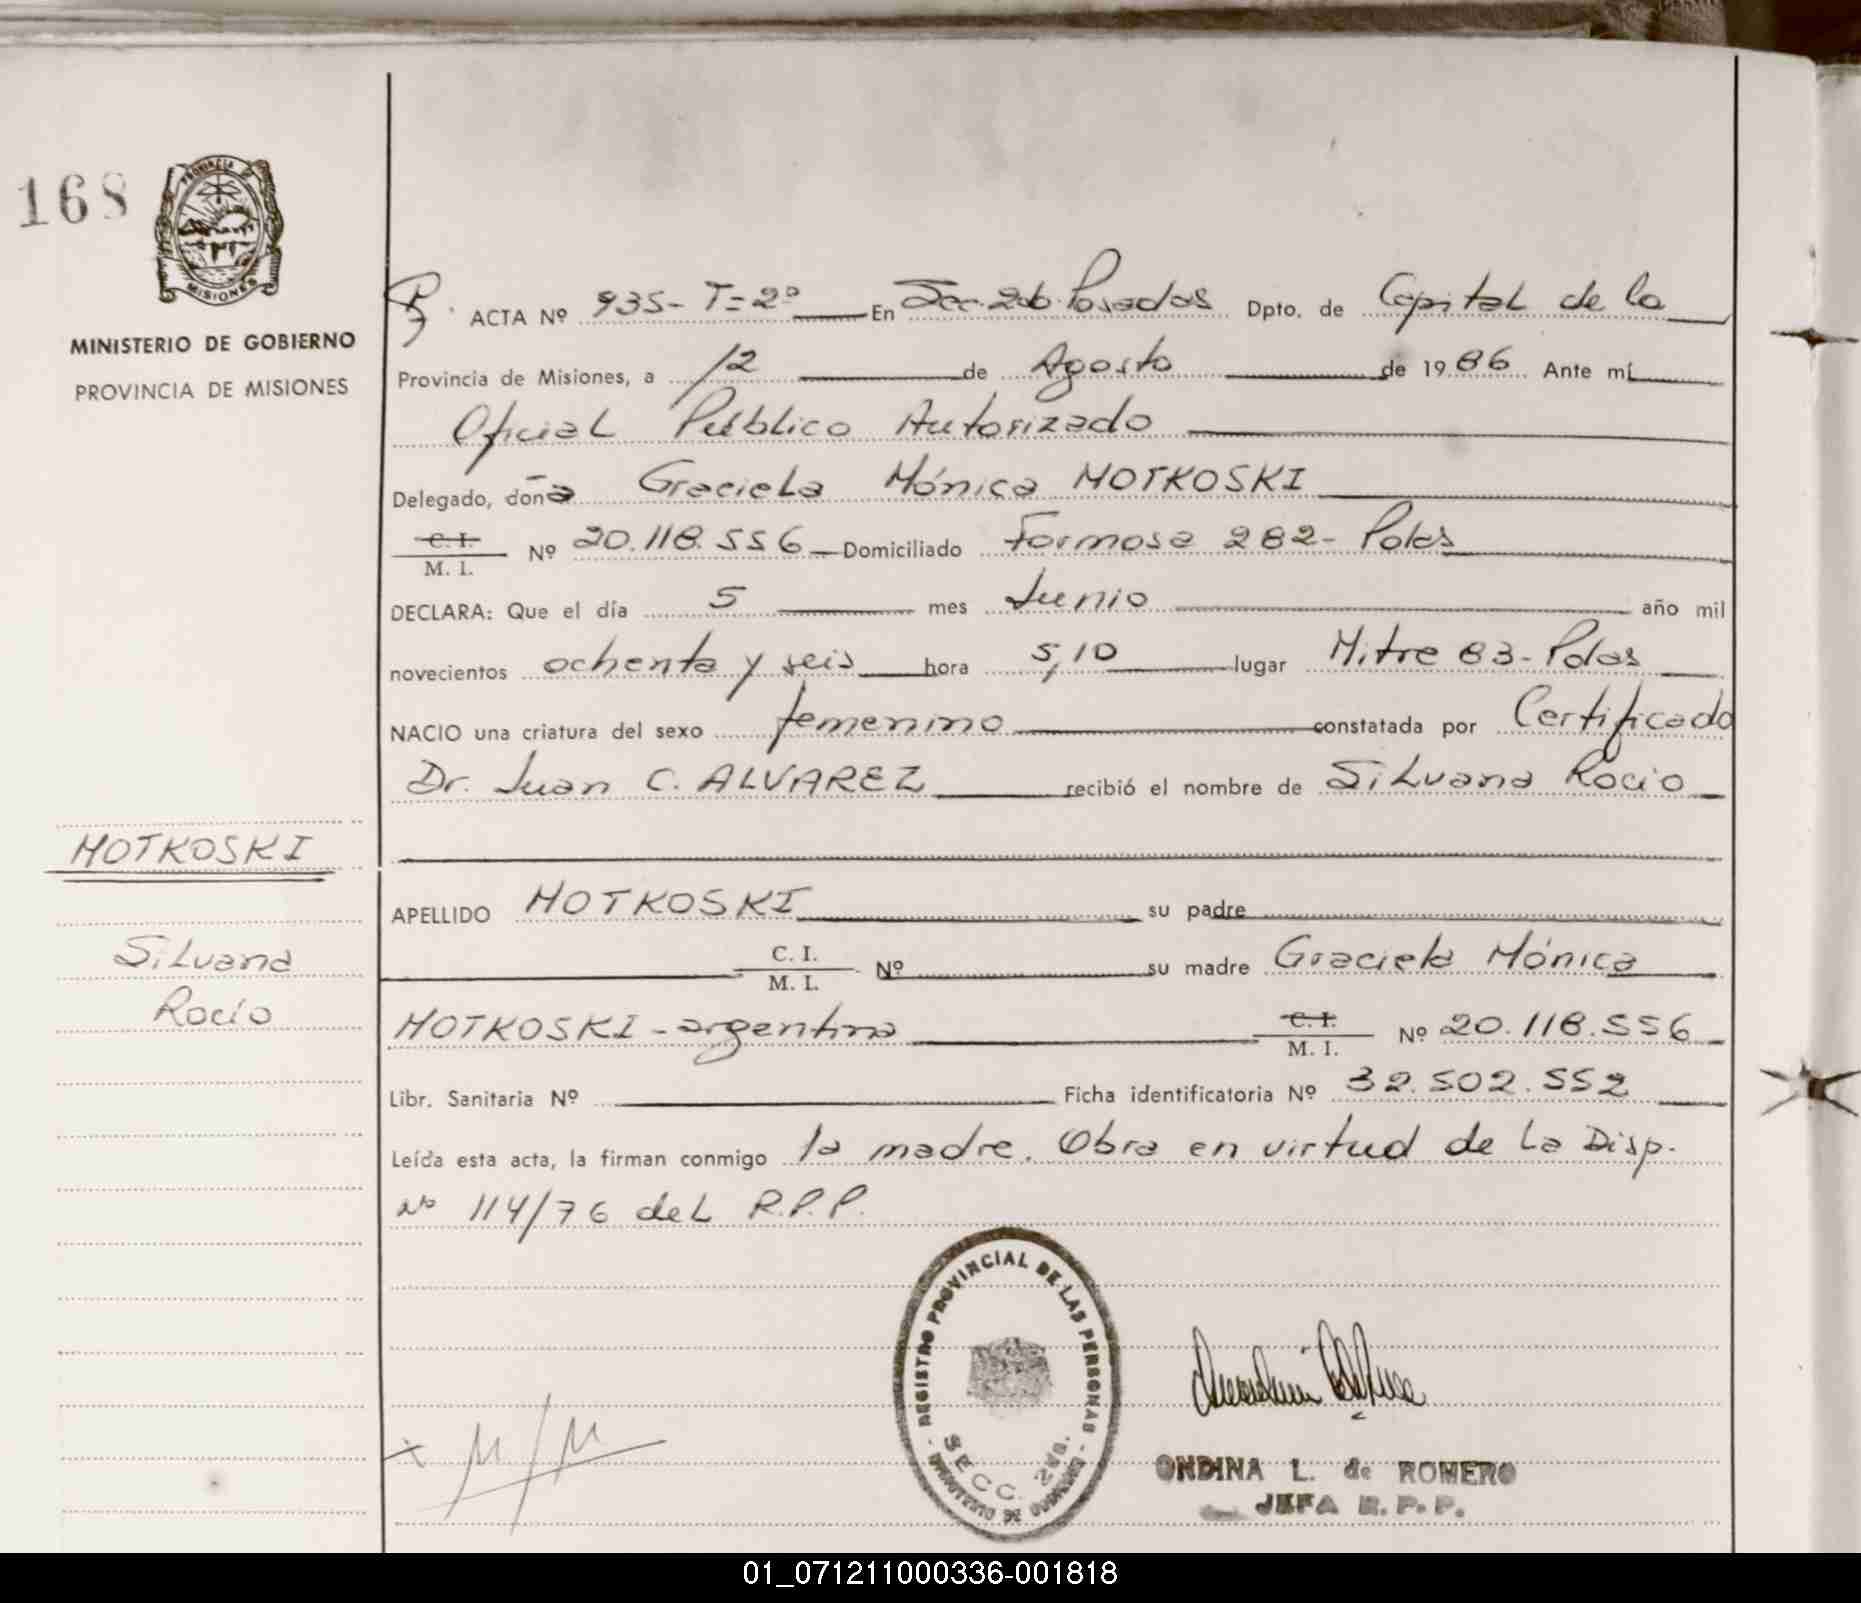 168
PROVINCIA DE
MISIONES
MINISTERIO DE GOBIERNO
PROVINCIA DE MISIONES
ACTA Nº 935- T=2º En Secc. 2da. Posadas Dpto. de Capital de la
Provincia de Misiones, a 12 de Agosto de 1986 Ante mí
Oficial Público Autorizado
Delegado, doña Graciela Mónica MOTKOSKI
C. I.
M. I. Nº 20.118.556 Domiciliado Formosa 282- Pdas
DECLARA: Que el día 5 mes Junio año mil
novecientos ochenta y seis hora 5,10 lugar Mitre 83- Pdas
NACIO una criatura del sexo femenino constatada por Certificado
Dr. Juan C. ALVAREZ recibió el nombre de Silvana Rocio
MOTKOSKI
APELLIDO MOTKOSKI su padre
Silvana
C. I.
M. I. Nº su madre Graciela Mónica
Rocío
MOTKOSKI - argentina C. I.
M. I. Nº 20.118.556
Libr. Sanitaria Nº Ficha identificatoria Nº 32.502.552
Leída esta acta, la firman conmigo la madre. Obra en virtud de la Disp.
Nº 114/76 del R.P.P.
REGISTRO PROVINCIAL DE LAS PERSONAS
SECC. 2da.
MINISTERIO DE GOBIERNO
ONDINA L. de ROMERO
JEFA R. P. P.
01_071211000336-001818